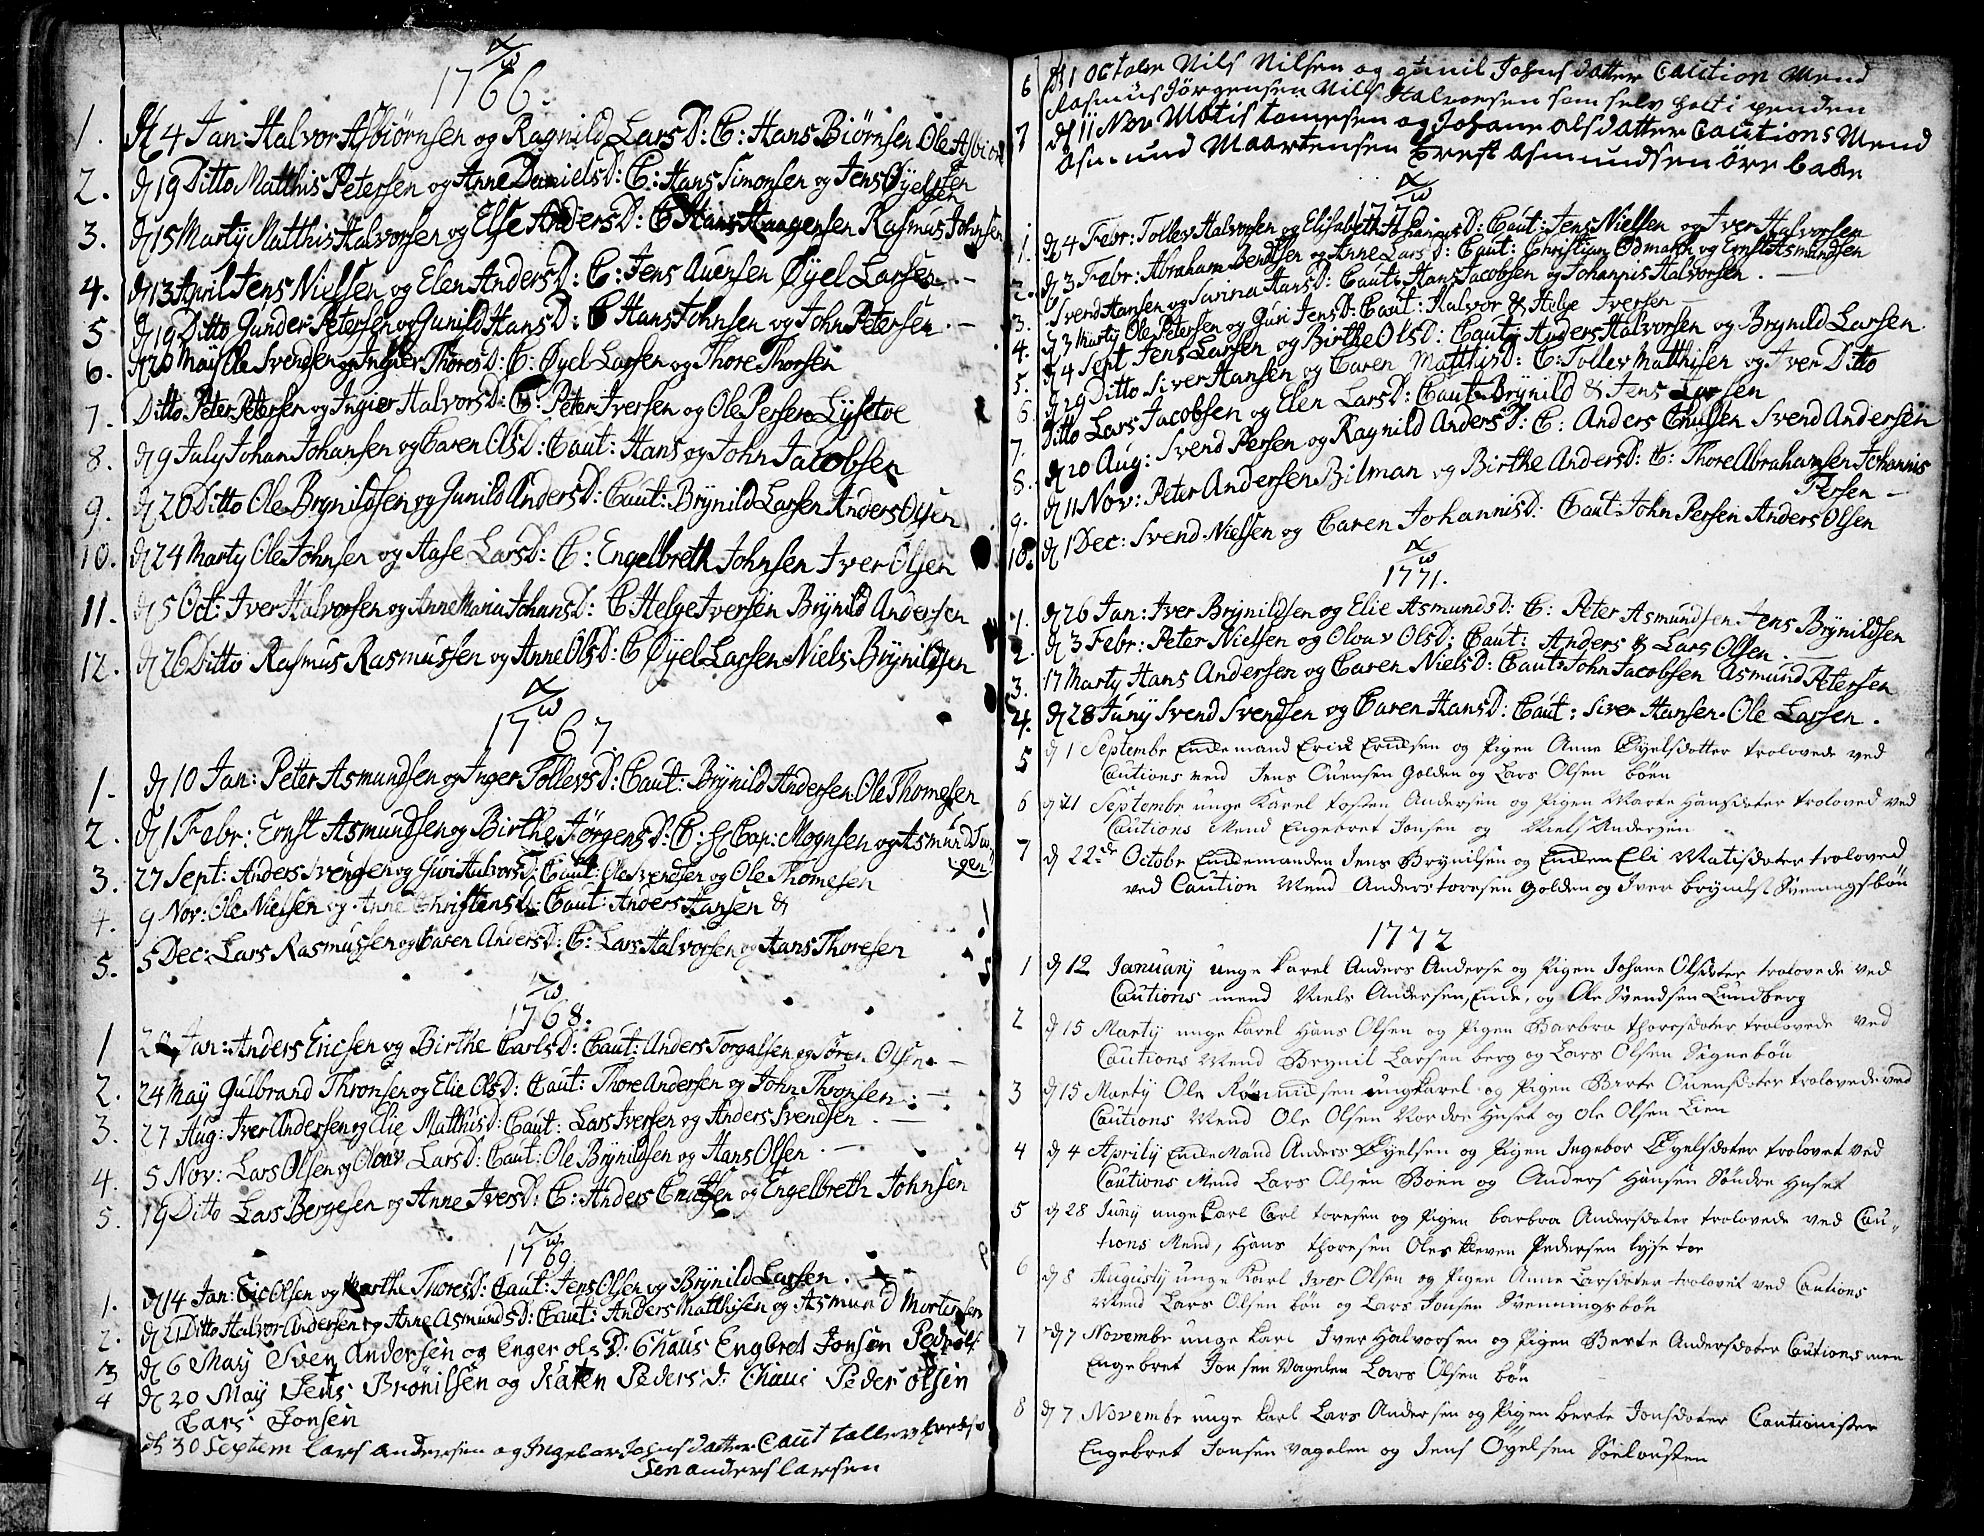 1766
1. d 4 Jan: Halvor Asbiørnsen og Ragnild LarsD: C: Hans Biørnsen Ole Asbiør
2. d 19 Ditto Matthis Petersen og Anne DanielsD: C: Hans Simonsen og Jens Øyelsen
3. d 15 Marty Matthis Halvorsen og Else AndersD: C Hans Haagensen Rasmus Johnsen
4. d 13 April Jens Nielsen og Elen AndersD: C: Jens Auensen Øyel Larsen
5 d 19 Ditto Gunder Petersen og Gunild HansD: C Hans Johnsen og John Petersen
6. d 26 May Ole Svendsen og Ingier ThoresD: C: Øyel Larsen og Thore Thorsen
7. Ditto Peter Petersen og Ingier HalvorsD: C: Peter Iversen og Ole Persen Lysetoe
8. d 9 July Johan Johansen og Caren OlsD: Caut: Hans og John Jacobsen
9. d 26 Ditto Ole Brynildsen og Gunild AndersD: Caut: Brynild Larsen Anders Oysen
10. d 24 Marty Ole Johnsen og Aase LarsD: C: Engelbreth Johnsen Iver Olsen
11. d 5 Oct: Iver Halvorsen og Anne Maria JohansD: C Helge Iversen Brynild Andersen
12. d 26 Ditto Rasmus Rasmussen og Anne OlsD: C Øyel Larsen Niels Brynildsen
1767
1. d 10 Jan: Peter Asmundsen og Inger TollevsD: Caut: Brynild Andersen Ole Thomesen
2. d 1 Febr: Ernst Asmundsen og Birthe JørgensD: C: Hr Cap: Mognsen og Asmund
3. 27 Sept: Anders Svensen og Guri HalvorsD: Caut: Ole Svendsen og Ole Thomesen
4. 9 Nov: Ole Nielsen og Anne ChristensD: Caut: Anders Hansen &
5. 5 Dec: Lars Rasmussen og Caren AndersD: C: Lars Halvorsen og Hans Thoresen
1768.
1 Jan: Anders Ericsen og Birthe CarlsD: Caut: Anders Torgalsen og Søren Olsen
2. 24 May Gulbrand Thronsen og Elie OlsD: Caut: Thore Andersen og John Thronsen
3. 27 Aug: Iver Andersen og Elie MatthisD: Caut: Lars Iversen og Anders Svendsen
4. 5 Nov: Lars Olsen og Olouv LarsD: Caut: Ole Brynildsen og Hans Olsen
5. 19 Ditto Lars Bergesen og Anne IversD: C: Anders Cnutsen og Engelbreth Johnsen
1769
1. d 14 Jan: Eric Olsen og Marthe ThoresD: Caut: Jens Olsen og Brynild Larsen
2. d 21 Ditto Halvor Andersen og Anne AsmundsD: Caut: Anders Matthisen og Asmund Mortensen
3 d 6 May Sven Andersen og Enger ols D: Chaus Engbret Jonsen Peder ols
4 d 20 May Jens Brønilsen og Karen Peders D: Chaus Peder olsen
Lars Jonsen
dh 30 Septem lars andersen og Ingebor Johns datter Caut tallev
sen anders larsen
6 dh 1 October Nils Nilsen og gunil Johns datter Caution Mend
Rasmus Jørgensen Nills Halvorsen som selv holt i penden
7 dh 11 Nov Matis tomesen og Johane olsdatter Cautions Mend
Asmund Maartensen Ernst asmundsen øre bade
1770
1. d 4 Febr: Tollev Halvorsen og Elisabeth JohannsD: Caut: Jens Nielsen og Iver Halvorsen
2. d 3 Febr: Abraham Bendtsen og Anne LarsD: Caut: Christian Odmann og Ernst Asmundsen
3. Svend Hansen og Sarina HansD: Caut: Hans Jacobsen og Johannis Halvorsen
4. d 3 Marty Ole Petersen og Guri JensD: Caut: Halvor & Helge Iversen
5. d 4 Sept Jens Larsen og Birthe OlsD: Caut: Anders Halvorsen og Brynild Larsen
6. d 29 Ditto Siver Hansen og Caren MatthisD: C: Tollev Matthisen og Iver Ditto
7. Ditto Lars Jacobsen og Elen LarsD: Caut Brynild & Jens Larsen
8. d 20 Aug: Svend Persen og Ragnild AndersD: C: Anders Cnutsen Svend Andersen
9. d 11 Nov: Peter Andersen Bilman og Birthe AndersD: C: Thore Abrahamsen Johannis
Persen
10. d 1 Dec: Svend Nielsen og Caren JohannisD: Caut John Persen Anders Olsen
1771.
1. d 26 Jan: Iver Brynildsen og Elie AsmundsD: C: Peter Asmundsen Jens Brynildsen
2. d 3 Febr: Peter Nielsen og Olouv OlsD: Caut: Anders & Lars Olsen
3. 17 Marty Hans Andersen og Caren NielsD: Caut: John Jacobsen Asmund Petersen
4. d 28 Juny Svend Svendsen og Caren HansD: Caut: Siver Hansen Ole Larsen
5 d 1 Septembr Enckemand Erick Ericksen og Pigen Anne Øyelsdotter trolovede ved
Cautions mend Jens Ouensen Golden og Lars Olsen böen
6 d 21 Septembr unge Karel tosten Andersen og Pigen Marte Hansdoter troloved ved
Cautions Mend Engebret Jonsen og Niels Andersen
7 d 22de Octobr Enckemanden Jens Brynilsen og Encken Eli Matisdoter troloved
ved Caution Mend Anders toresen Golden og Iver Brynils Sveningsbön
1772
1 d 12 January unge karel Anders Anderse og Pigen Johane Olsdoter trolovede ved
Cautions mend Niels Andersen, Ende, og Ole Svendsen Lundberg
2 d 15 Marty unge karel Hans Olsen og Pigen Barbro thoresdoter trolovede ved
Cautions Mend Brynil Larsen berg og Lars Olsen Signebön
3 d 15 Marty Ole sen ungkarel og Pigen Berte Ouensdoter trolovede ved
Cautions Mend Ole Olsen Nordre Huset og Ole Olsen Lien
4 d 4 Aprily Encke Mand Anders Øyelsen og Pigen Ingebor Øyelsdoter trolovet ved
Cautions Mend Lars Olsen Böen og Anders Hansen Söndre Huset
5 d 28 Juny unge Karl Carl toresen og Pigen barbra Andersdoter trolovede ved Cau-
tions Mend, Hans thoresen Oles kleven Pedersen lyse toe
6 d 8 Augusty unge Karl Iver Olsen og Pigen Anne Larsdoter trolovet ved Cautions
Mend Lars Olsen bön og Lars Jonsen Svenningsbön
7 d 7 Novembr unge karl Iver Halvorsen og Pigen Berte Andersdoter Cautions men
Engebret Jonsen Vagelen Lars Olsen bön
8 d 7 Novembr unge karl Lars Andersen og Pigen berte Jonsdoter Cautionister
Engebret Jonsen vagelen og Jens Oyelsen